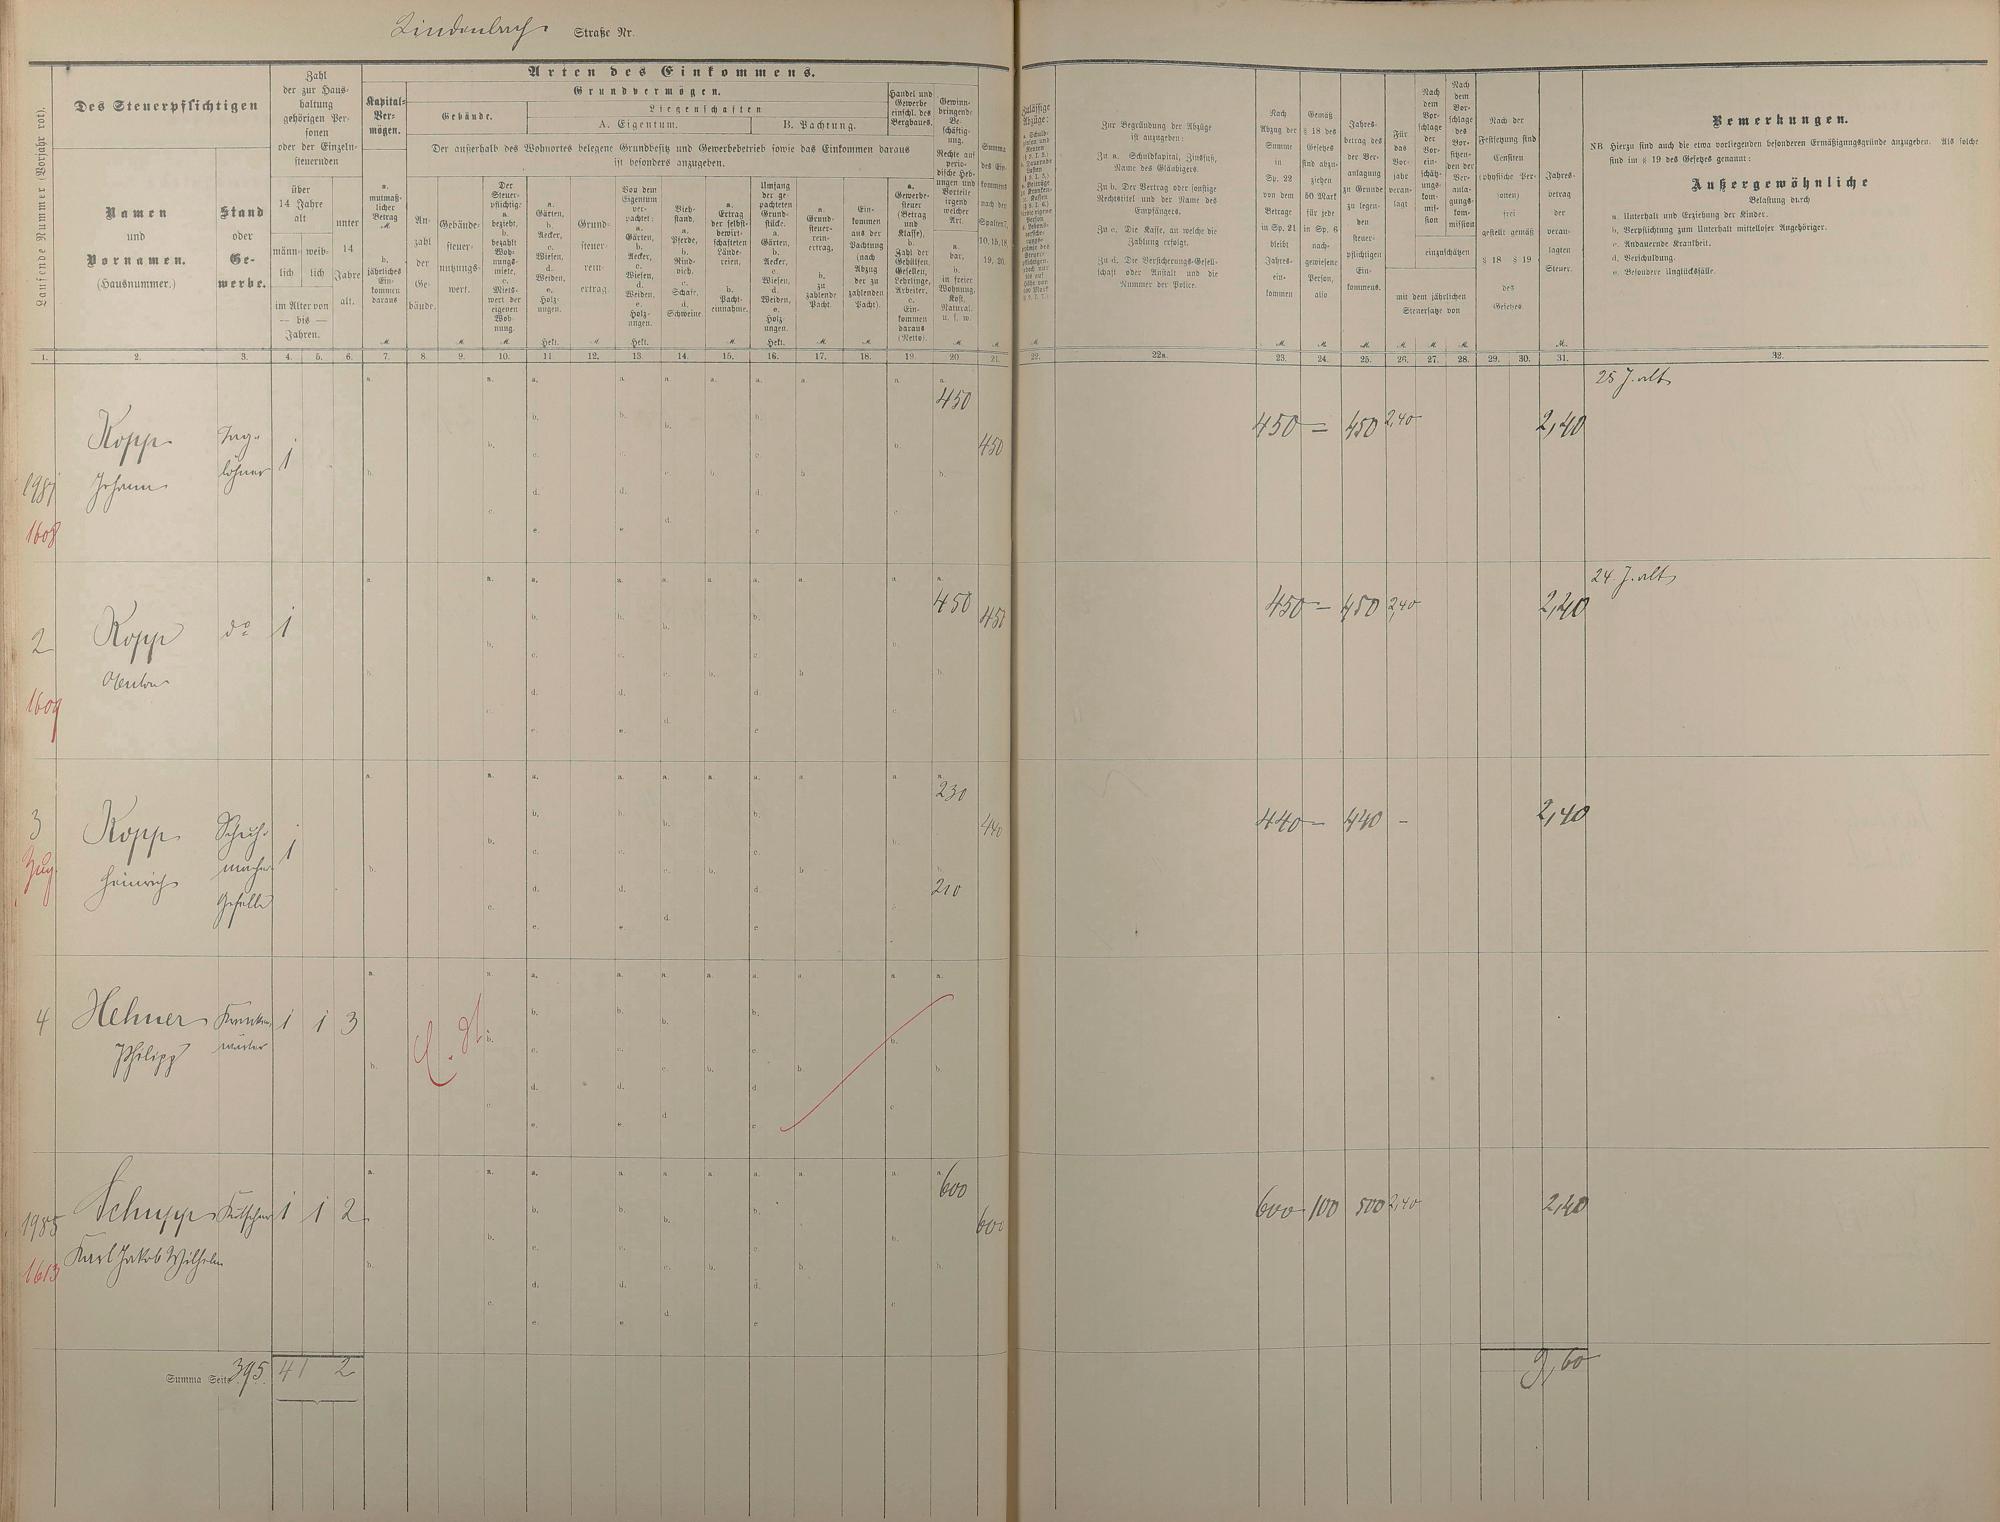 Lindenbach Straße Nr.
Laufende Nummer (Vorjahr rot).
Des Steuerpflichtigen
Namen
und
Vornamen.
(Hausnummer.)
Stand
oder
Ge-
werbe.
Zahl
der zur Haus-
haltung
gehörigen Per-
sonen
oder der Einzeln-
steuernden
über
14 Jahre
alt
unter
14
Jahre
alt.
männ-
lich
weib-
lich
im Alter von
— bis —
Jahren.
Arten des Einkommens.
Kapital-
Ver-
mögen.
a.
mutmaß-
licher
Betrag
M
b.
jährliches
Ein-
kommen
daraus
M
Grundvermögen.
Gebäude.
Liegenschaften
A. Eigentum.
B. Pachtung.
Der außerhalb des Wohnortes belegene Grundbesitz und Gewerbebetrieb sowie das Einkommen daraus
ist besonders anzugeben.
An-
zahl
der
Ge-
bäude.
Gebäude-
steuer-
nutzungs-
wert.
M
Der
Steuer-
pflichtige:
a.
bezieht,
b.
bezahlt
Woh-
nungs-
miete,
c.
Miets-
wert der
eigenen
Woh-
nung.
M
a.
Gärten,
b.
Aecker,
c.
Wiesen,
d.
Weiden,
e.
Holz-
ungen.
Hekt.
Grund-
steuer-
rein-
ertrag.
Von dem
Eigentum
ver-
pachtet:
a.
Gärten,
b.
Aecker,
c.
Wiesen,
d.
Weiden,
e.
Holz-
ungen.
Hekt.
Vieh-
stand.
a.
Pferde,
b.
Rind-
vieh.
c.
Schafe.
d.
Schweine
a.
Ertrag
der selbst-
bewirt-
schafteten
Lände-
reien,
b.
Pacht-
einnahme.
M
Umfang
der ge-
pachteten
Grund-
stücke.
a.
Gärten,
b.
Aecker,
c.
Wiesen,
d.
Weiden,
e.
Holz-
ungen.
Hekt.
a.
Grund-
steuer-
rein-
ertrag,
b.
zu
zahlende
Pacht.
M
Ein-
kommen
aus der
Pachtung
(nach
Abzug
der zu
zahlenden
Pacht).
M
Handel und
Gewerbe
einschl. des
Bergbaues.
a.
Gewerbe-
steuer
(Betrag
und
Klasse),
b.
Zahl der
Gehülfen,
Gesellen,
Lehrlinge,
Arbeiter.
c.
Ein-
kommen
daraus
(Netto).
Gewinn-
bringende
Be-
schäftig-
ung.
Rechte auf
perio-
dische Heb-
ungen und
Vorteile
irgend
welcher
Art.
a.
bar,
b.
in freier
Wohnung,
Kost,
Natural.
u. s. w.
M
Summa
des Ein-
kommens
nach der
Spalten 7,
10, 15, 18,
19, 20.
M
Zulässige
Abzüge:
M
Zur Begründung der Abzüge
ist anzugeben:
Zu a. Schuldkapital, Zinsfuß,
Name des Gläubigers.
Zu b. Der Vertrag oder sonstige
Rechtstitel und der Name des
Empfängers.
Zu c. Die Kasse, an welche die
Zahlung erfolgt.
Zu d. Die Versicherungs-Gesell-
schaft oder Anstalt und die
Nummer der Police.
Nach
Abzug der
Summe
in
Sp. 22
von dem
Betrage
in Sp. 21
bleibt
Jahres-
ein-
kommen
M
Gemäß
§ 18 des
Gesetzes
sind abzu-
ziehen
50 Mark
für jede
in Sp. 6
nach-
gewiesene
Person,
also
M
Jahres-
betrag des
der Ver-
anlagung
zu Grunde
zu legen-
den
steuer-
pflichtigen
Ein-
kommens.
M
Für
das
Vor-
jahr
veran-
lagt
Nach
dem
Vor-
schlage
der
Vor-
ein-
schätz-
ungs-
kom-
mis-
sion
Nach
dem
Vor-
schlage
des
Vor-
sitzen-
den der
Ver-
anla-
gungs-
kom-
mission
einzuschätzen
mit dem jährlichen
Steuersatze von
M M M
Nach der
Festsetzung sind
Censiten
(physische Per-
sonen)
frei
gestellt gemäß
§ 18 § 19
des
Gesetzes.
Jahres-
betrag
der
veran-
lagten
Steuer.
M.
Bemerkungen.
NB. Hierzu sind auch die etwa vorliegenden besonderen Ermäßigungsgründe anzugeben. Als solche
sind im § 19 des Gesetzes genannt:
Außergewöhnliche
Belastung durch
a. Unterhalt und Erziehung der Kinder.
b. Verpflichtung zum Unterhalt mittelloser Angehöriger.
c. Andauernde Krankheit.
d. Verschuldung.
e. Besondere Unglücksfälle.
1. 2. 3. 4. 5. 6. 7. 8. 9. 10. 11 12. 13. 14. 15. 16. 17. 18. 19. 20 21. 22. 22a. 23. 24. 25. 26. 27. 28. 29. 30. 31. 32.
1981 Kopp Tag- 1 450 450 450 = 450 2,40 2,40 25 J. alt
Johann löhner
1608
2 Kopp do 1 450 450 450 — 450 2,40 2,40 24 J. alt
Anton
1609
3 Kopp Schuh- 1 230 440 440 — 440 - 2,40
Zug. Heinrich macher
Geselle 210
4 Hehner Kranken- 1 1 3
Philipp wärter
1985 Schupp Kutscher 1 1 2 600 600 600 100 500 2,40 2,40
1613 Karl Jakob Wilhelm
Summa Seite 395. 4 1 2 9,60